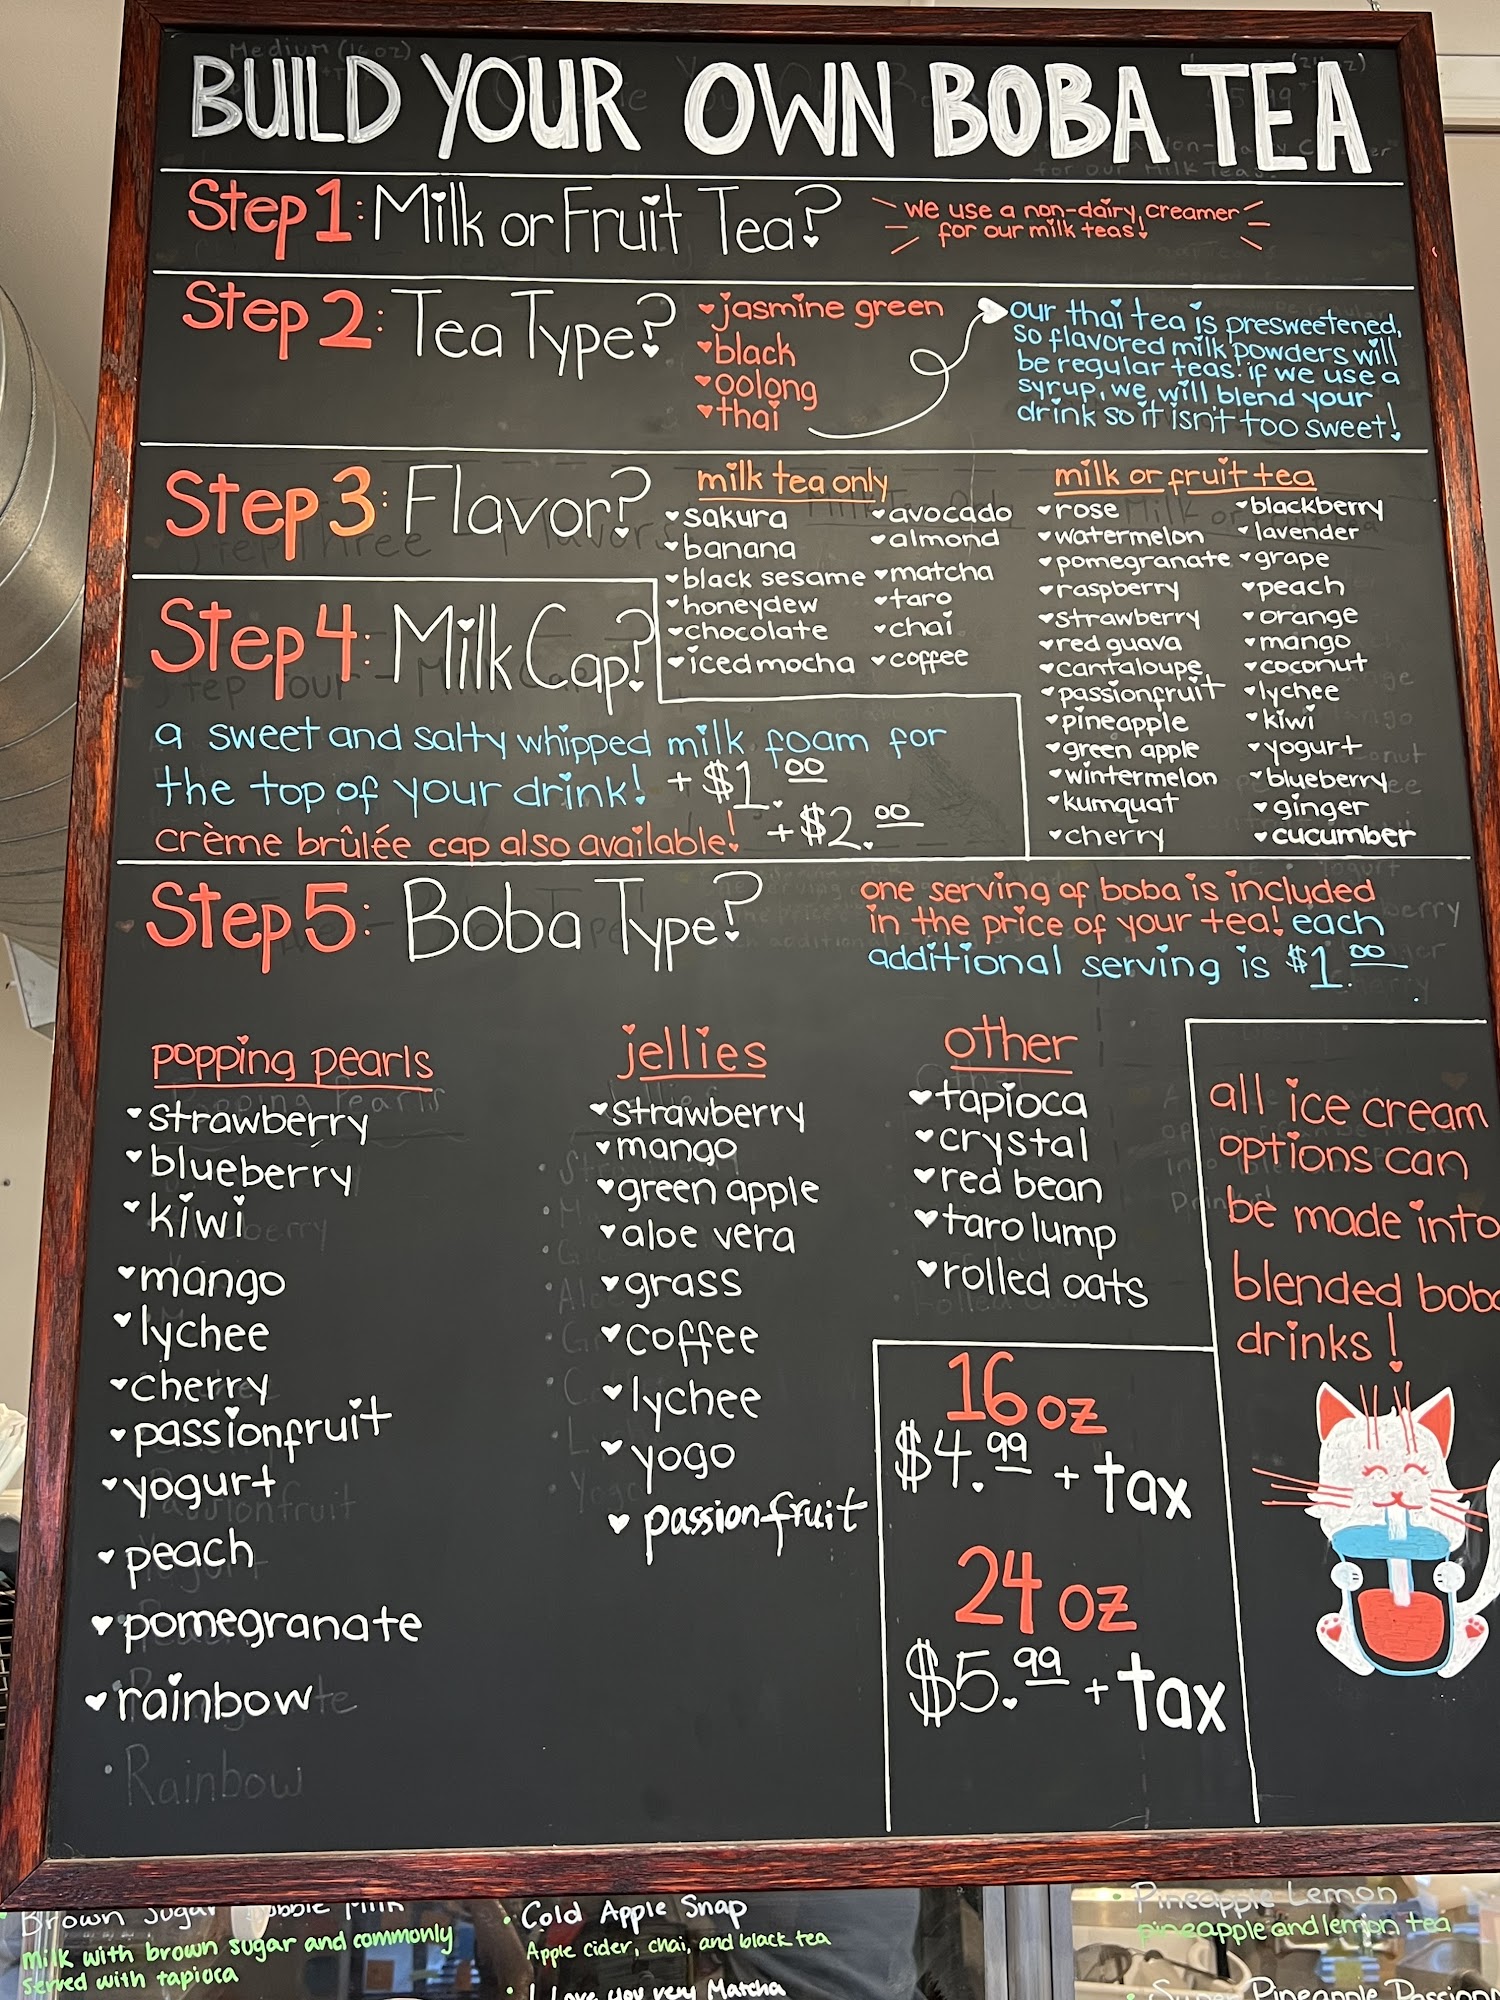 BUILD YOUR OWN BOBA TEA
Step 1: Milk or Fruit Tea?
we use a non-dairy creamer
for our milk teas!
Step 2: Tea Type?
jasmine green
black
oolong
thai
our thai tea is presweetened,
so flavored milk powders will
be regular teas. if we use a
syrup, we will blend your
drink so it isn't too sweet!
Step 3: Flavor?
milk tea only
sakura
banana
black sesame
honeydew
chocolate
iced mocha
avocado
almond
matcha
taro
chai
coffee
milk or fruit tea
rose
watermelon
pomegranate
raspberry
strawberry
red guava
cantaloupe
passionfruit
pineapple
green apple
wintermelon
kumquat
cherry
blackberry
lavender
grape
peach
orange
mango
coconut
lychee
kiwi
yogurt
blueberry
ginger
cucumber
Step 4: Milk Cap?
a sweet and salty whipped milk foam for
the top of your drink! + $1.00
crème brûlée cap also available! + $2.00
Step 5: Boba Type?
one serving of boba is included
in the price of your tea! each
additional serving is $1.00
popping pearls
strawberry
blueberry
kiwi
mango
lychee
cherry
passionfruit
yogurt
peach
pomegranate
rainbow
Rainbow
jellies
strawberry
mango
green apple
aloe vera
grass
coffee
lychee
yogo
passionfruit
other
tapioca
crystal
red bean
taro lump
rolled oats
16 oz
$4.99 + tax
24 oz
$5.99 + tax
all ice cream
options can
be made into
blended boba
drinks!
Brown Sugar Milk
Milk with brown sugar and commonly
served with tapioca
Cold Apple Snap
Apple cider, chai, and black tea
I Love you very Matcha
Pineapple Lemon
pineapple and lemon tea
Super Pineapple Passion